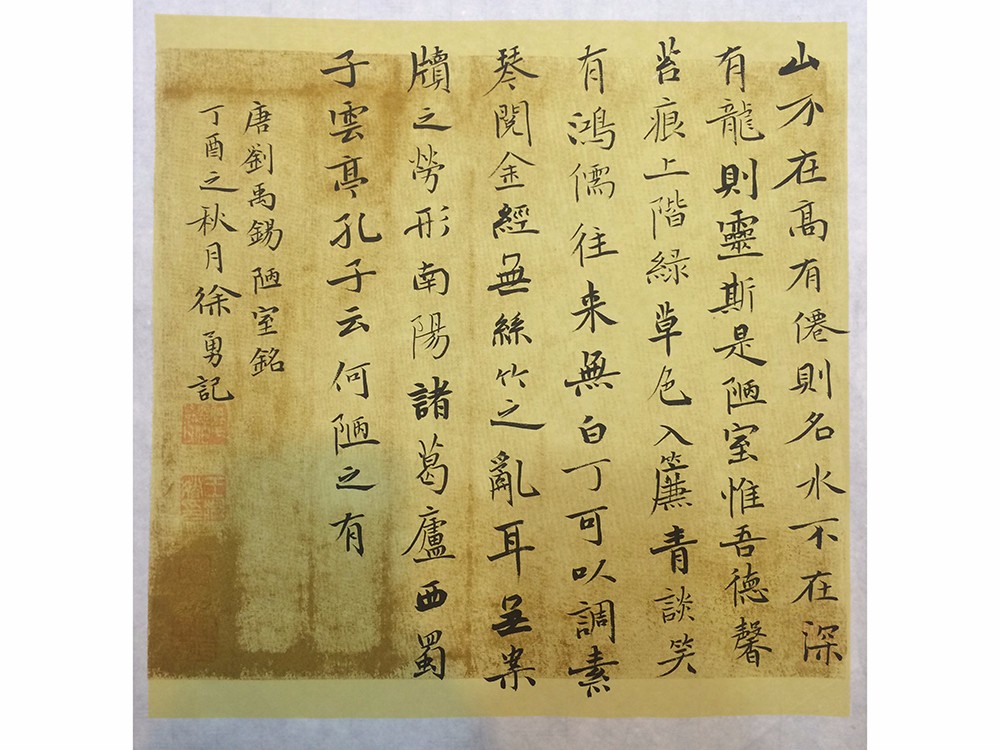 山不在高有僊則名水不在深
有龍則靈斯是陋室惟吾德馨
苔痕上階綠草色入簾青談笑
有鴻儒往来無白丁可以調素
琴閱金經無絲竹之亂耳無案
牘之勞形南陽諸葛廬西蜀
子雲亭孔子云何陋之有
唐劉禹錫陋室銘
丁酉之秋月徐勇記